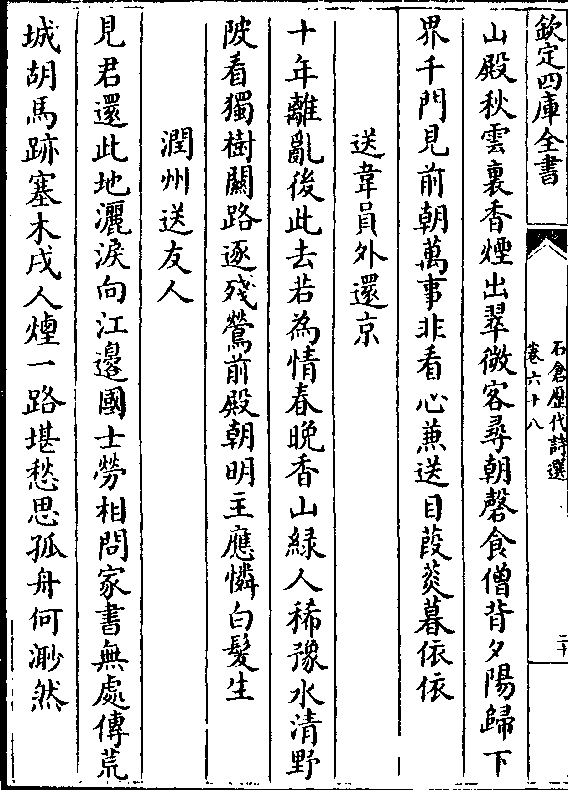 欽定四庫全書
石倉歷代詩選
卷六十八
二十
山殿秋雲裏香煙出翠微客尋朝磬食僧背夕陽歸下
界千門見前朝萬事非看心兼送目葭菼暮依依
送韋員外還京
十年離亂後此去若為情春晚香山緑人稀豫水清野
陂看獨樹闗路逐殘鶯前殿朝明主應憐白髮生
潤州送友人
見君還此地灑淚向江邊國士勞相問家書無處傳荒
城胡馬跡塞木戍人煙一路堪愁思孤舟何渺然